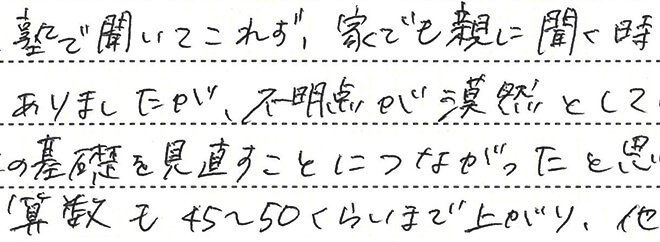 塾で聞いてこれず、家でも親に聞く時
ありましたが、不明点が漠然として
の基礎を見直すことにつながったと思い
算数も45〜50くらいまで上がり、他